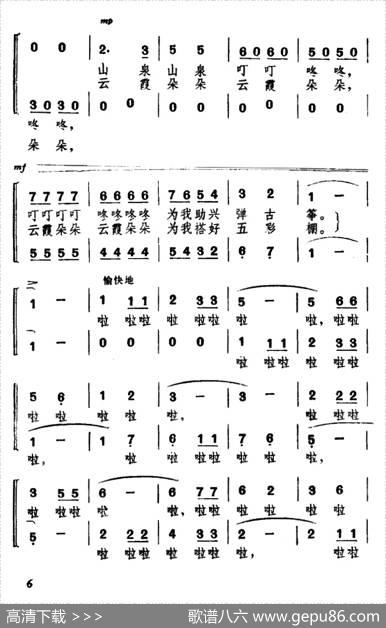 mp
0 0 | 2· 3 | 5 5 | 6060 | 5050 |
山 泉 山 泉 叮 叮 咚 咚,
云 霞 朵 朵 云 霞 朵 朵,
3030 | 0 0 | 0 0 | 0 0 | 0 0 |
咚 咚,
朵 朵,
mf
7777 | 6666 | 7654 | 3 2 | 1 – |
叮叮叮叮 咚咚咚咚 为我助兴 弹 古 筝。
云霞朵朵 云霞朵朵 为我搭好 五 彩 棚。
5555 | 4444 | 5432 | 6 7 | 1 – |
愉快地
1 – | 1 11 | 2 33 | 5 – | 5 66 |
啦 啦啦 啦 啦啦 啦 啦, 啦啦
1 – | 0 0 | 0 0 | 1 11 | 2 33 |
啦 啦啦 啦 啦啦
5 6 | 1 2 | 3 – | 3 – | 2 22 |
啦 啦 啦 啦 啦, 啦 啦啦
1 – | 1 7 | 6 11 | 7 6 | 5 – |
啦, 啦 啦 啦啦 啦 啦 啦,
3 55 | 6 – | 6 77 | 6 2 | 3 6 |
啦 啦啦 啦 啦, 啦啦 啦 啦 啦 啦
5 – | 2 22 | 4 33 | 2 – | 2 11 |
啦 啦啦 啦 啦啦 啦, 啦啦
6
高清下载 >>>
歌谱八六 www.gepu86.com